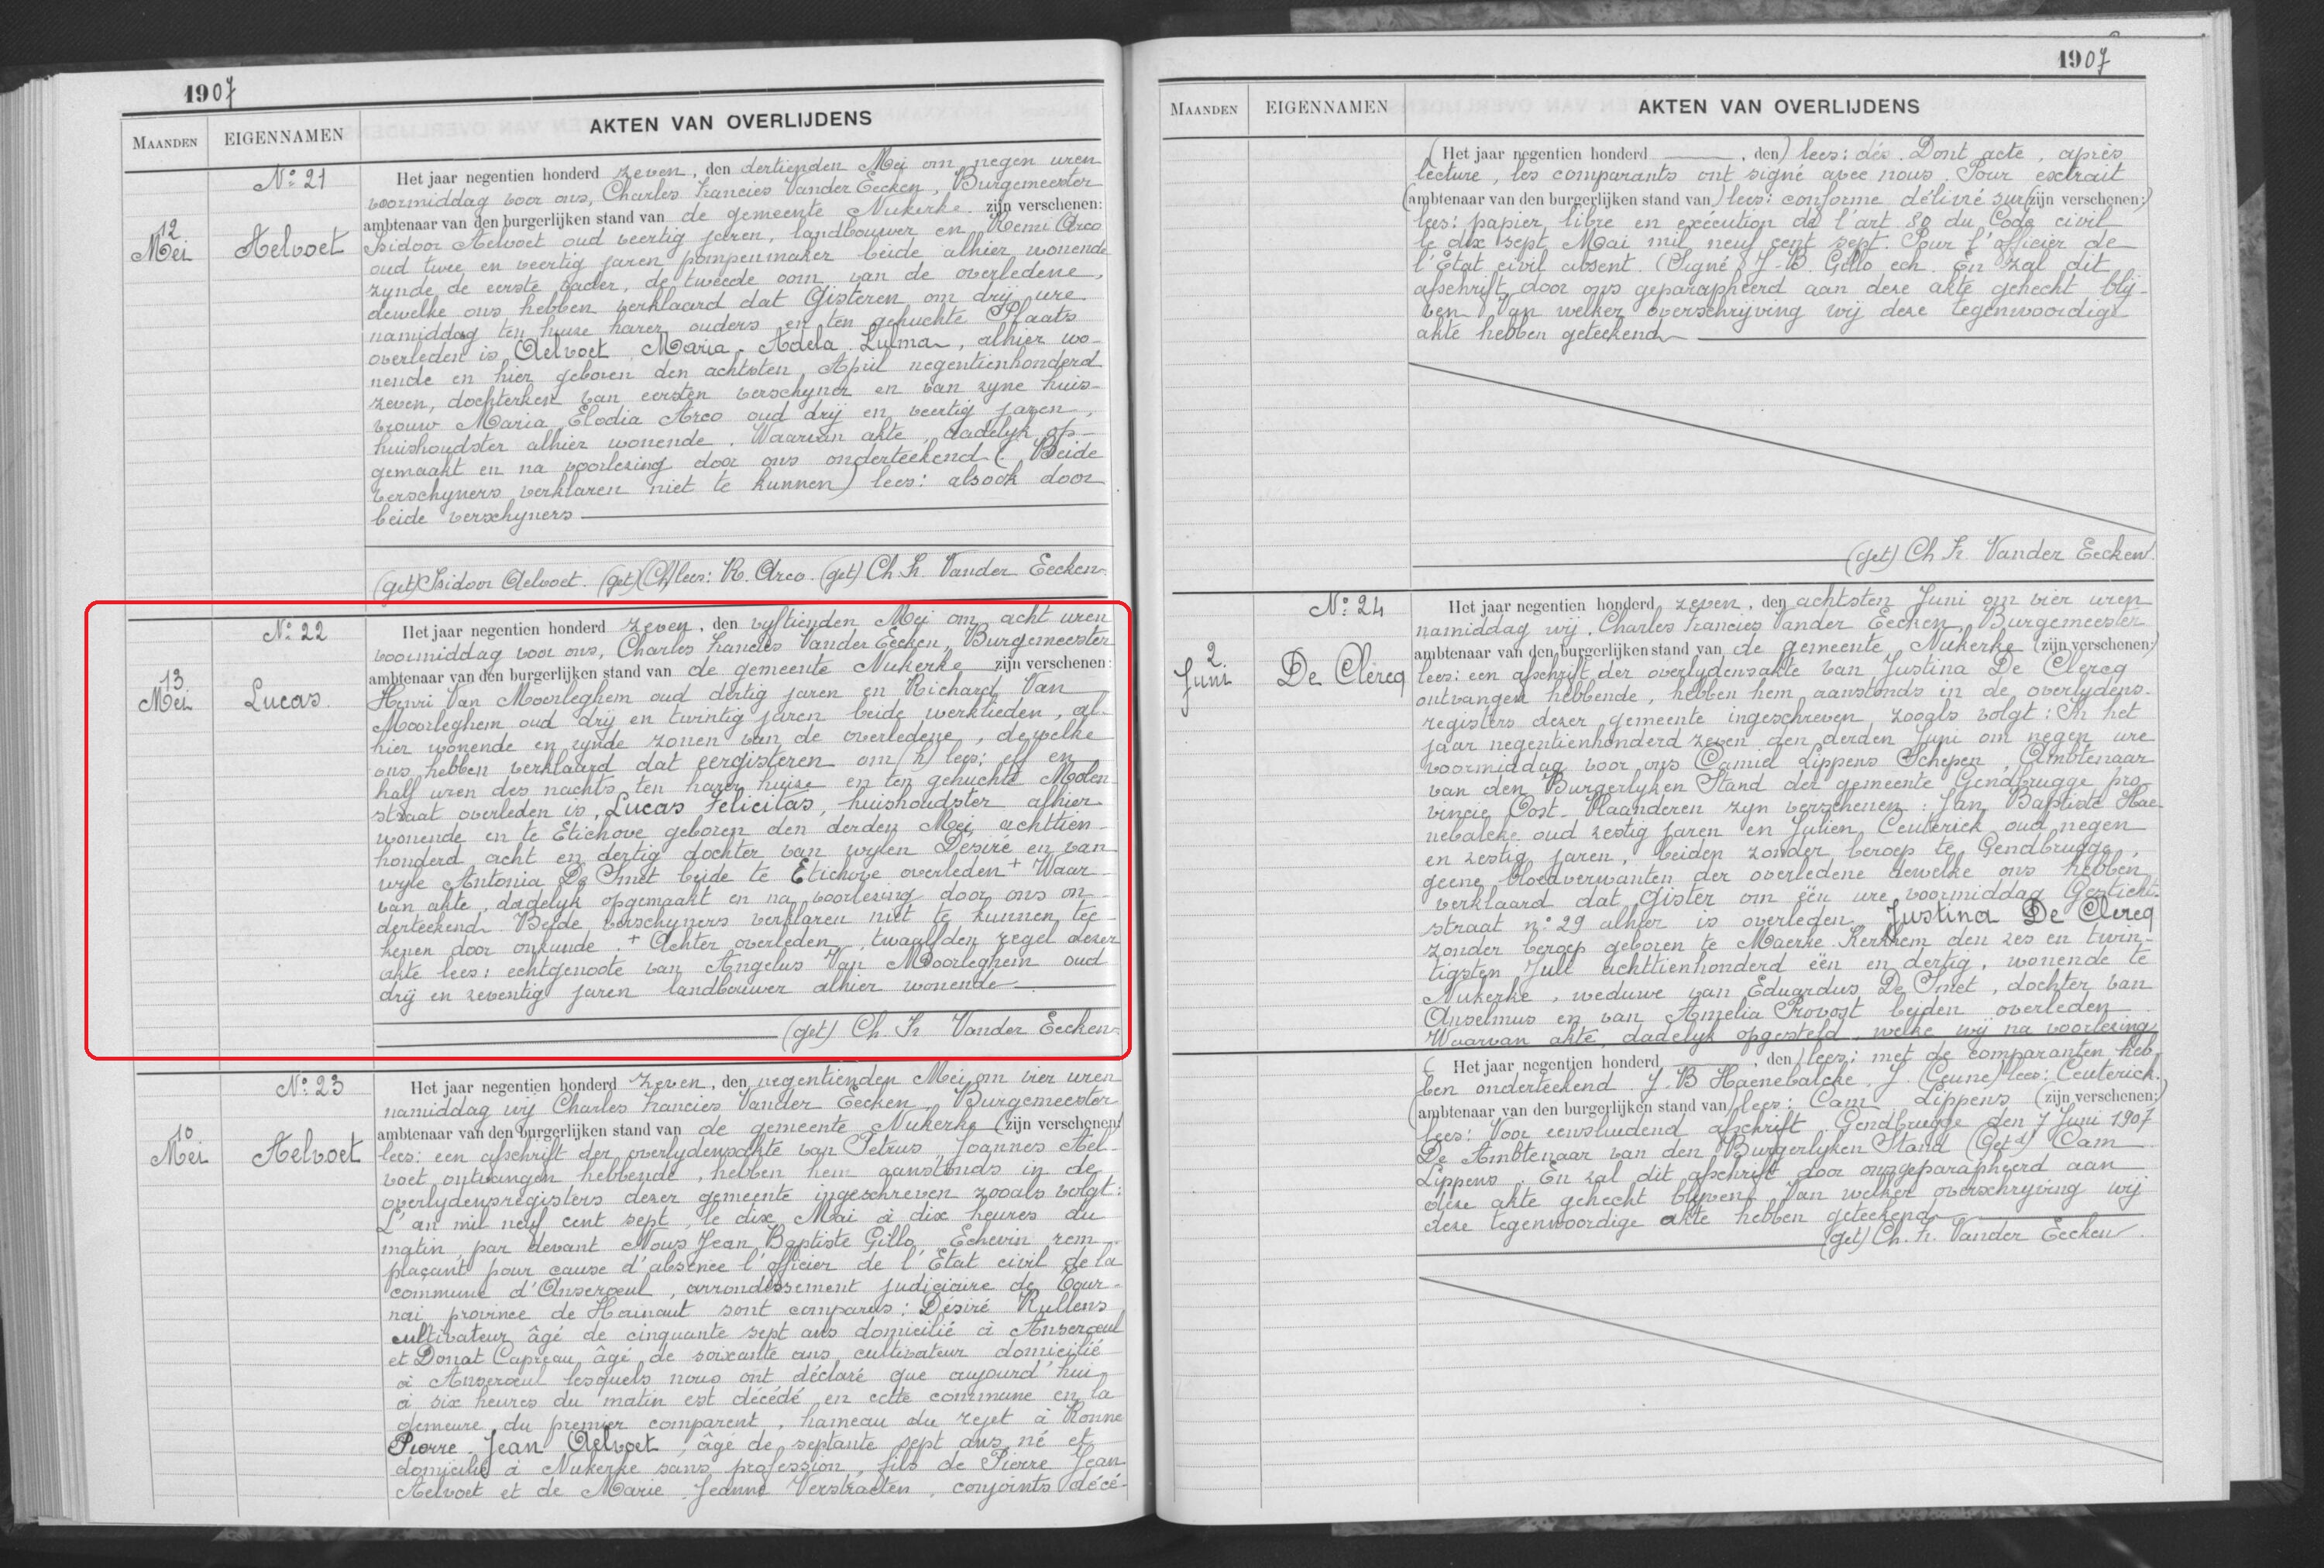 1907
MAANDEN
EIGENNAMEN
AKTEN VAN OVERLIJDENS
No: 21
12
Mei
Aelvoet
Het jaar negentien honderd zeven, den dertienden Mei om negen uren
voormiddag voor ons, Charles Francies Vander Eecken, Burgemeester
ambtenaar van den burgerlijken stand van de gemeente Nukerke zijn verschenen:
Isidoor Aelvoet oud veertig jaren, landbouwer en Remi Arco
oud twee en veertig jaren pompenmaker beide alhier wonende
zynde de eerste vader, de tweede oom van de overledene,
dewelke ons hebben verklaard dat Gisteren om drij ure
namiddag ten huize harer ouders en ten gehuchte Plaats
overleden is Aelvoet Maria Adela Zulma, alhier wo-
nende en hier geboren den achtsten April negentienhonderd
zeven, dochterken van eersten verschyner en van zyne huis-
vrouw Maria Elodia Arco oud drij en veertig jaren,
huishoudster alhier wonende. Waarvan akte, dadelyk op-
gemaakt en na voorlezing door ons onderteekend (Beide
verschyners verklaren niet te kunnen) lees: alsook door
beide verschyners
(get) Isidoor Aelvoet. (get) (Ch) lees: R. Arco. (get) Ch. Fr. Vander Eecken
No: 22
13
Mei
Lucas.
Het jaar negentien honderd zeven, den vyftienden Mei om acht uren
voormiddag voor ons, Charles Francies Vander Eecken, Burgemeester
ambtenaar van den burgerlijken stand van de gemeente Nukerke zijn verschenen:
Henri Van Moorleghem oud dertig jaren en Richard Van
Moorleghem oud drij en twintig jaren beide werklieden, al-
hier wonende en zynde zonen van de overledene, dewelke
ons hebben verklaard dat eergisteren om (h) lees: elf en
half uren des nachts ten harer huize en ten gehuchte Molen
straat overleden is, Lucas Felicitas, huishoudster alhier
wonende en te Etichove geboren den derden Mei achttien-
honderd acht en dertig dochter van wylen Désiré en van
wyle Antonia De Smet beide te Etichove overleden + Waar-
van akte, dadelyk opgemaakt en na voorlezing door ons on-
derteekend. Beide verschyners verklaren niet te kunnen tee-
kenen door onkunde. + Achter overleden, twaalfden regel dezer
akte lees: echtgenoote van Angelus Van Moorleghem oud
drij en zeventig jaren landbouwer alhier wonende
(get) Ch. Fr. Vander Eecken
No: 23
10
Mei
Aelvoet
Het jaar negentien honderd zeven, den negentienden Mei om vier uren
namiddag wij Charles Francies Vander Eecken, Burgemeester
ambtenaar van den burgerlijken stand van de gemeente Nukerke (zijn verschenen:)
lees: een afschrift der overlydensakte van Petrus Joannes Ael-
voet ontvangen hebbende, hebben hem aanstonds in de
overlydensregisters dezer gemeente ingeschreven zooals volgt:
L'an mil neuf cent sept, le dix Mai à dix heures du
matin, par devant Nous Jean Baptiste Gillo, Echevin rem-
plaçant pour cause d'absence l'officier de l'Etat civil de la
commune d'Anserœul, arrondissement judiciaire de Tour-
nai province de Hainaut sont comparus: Désiré Rullens
cultivateur âgé de cinquante sept ans domicilié à Anserœul
et Donat Capreau âgé de soixante ans cultivateur domicilié
à Anserœul lesquels nous ont déclaré que aujourd'hui
à six heures du matin est décédé en cette commune en la
demeure du premier comparent, hameau du rejet à Ronne
Pierre Jean Aelvoet, âgé de septante sept ans né et
domicilié à Nukerke sans profession, fils de Pierre Jean
Aelvoet et de Marie Jeanne Verstraeten, conjoints décé-
1907
MAANDEN
EIGENNAMEN
AKTEN VAN OVERLIJDENS
(Het jaar negentien honderd , den) lees: dés. Dont acte, après
lecture, les comparants ont signé avec nous. Pour extrait
(ambtenaar van den burgerlijken stand van) lees: conforme délivré sur (zijn verschenen:)
lees: papier libre en exécution de l'art 80 du Code civil
le dix sept Mai mil neuf cent sept. Pour l'officier de
l'Etat civil absent. (Signé) J-B. Gillo ech. En zal dit
afschrift door ons geparapheerd aan deze akte gehecht blij-
ven. Van welker overschrijving wij deze tegenwoordige
akte hebben geteekend
(get) Ch Fr. Vander Eecken.
No: 24
2
Juni
De Clercq
Het jaar negentien honderd zeven, den achtsten Juni om vier uren
namiddag wij, Charles Francies Vander Eecken, Burgemeester
ambtenaar van den burgerlijken stand van de gemeente Nukerke (zijn verschenen:)
lees: een afschrift der overlydensakte van Justina De Clercq
ontvangen hebbende, hebben hem aanstonds in de overlydens-
registers dezer gemeente ingeschreven zooals volgt: In het
jaar negentienhonderd zeven den derden Juni om negen ure
voormiddag voor ons Camiel Lippens Schepen, Ambtenaar
van den Burgerlyken Stand der gemeente Gendbrugge pro-
vincie Oost-Vlaanderen zyn verschenen: Jan Baptiste Hae-
nebalcke oud zestig jaren en Julien Ceuterick oud negen
en zestig jaren, beiden zonder beroep te Gendbrugge,
geene bloedverwanten der overledene dewelke ons hebben
verklaard dat Gister om één ure voormiddag Gesticht-
straat no: 29 alhier is overleden Justina De Clercq
zonder beroep geboren te Maerke Kerkhem den zes en twin-
tigsten Juli achttienhonderd één en dertig, wonende te
Nukerke, weduwe van Eduardus De Smet, dochter van
Anselmus en van Amelia Provost beiden overleden
Waarvan akte, dadelyk opgesteld, welke wij na voorlezing
(Het jaar negentien honderd , den) lees: met de comparanten heb
ben onderteekend. J. B Haenebalcke. J. (Ceune) lees: Ceuterick.
(ambtenaar van den burgerlijken stand van) lees: Cam Lippens (zijn verschenen:)
lees: Voor eensluidend afschrift. Gendbrugge den 7 Juni 1907
De Ambtenaar van den Burgerlyken Stand (Getd) Cam
Lippens. En zal dit afschrift door ons geparapheerd aan
deze akte gehecht blyven. Van welker overschryving wij
deze tegenwoordige akte hebben geteekend
(get) Ch. Fr. Vander Eecken.